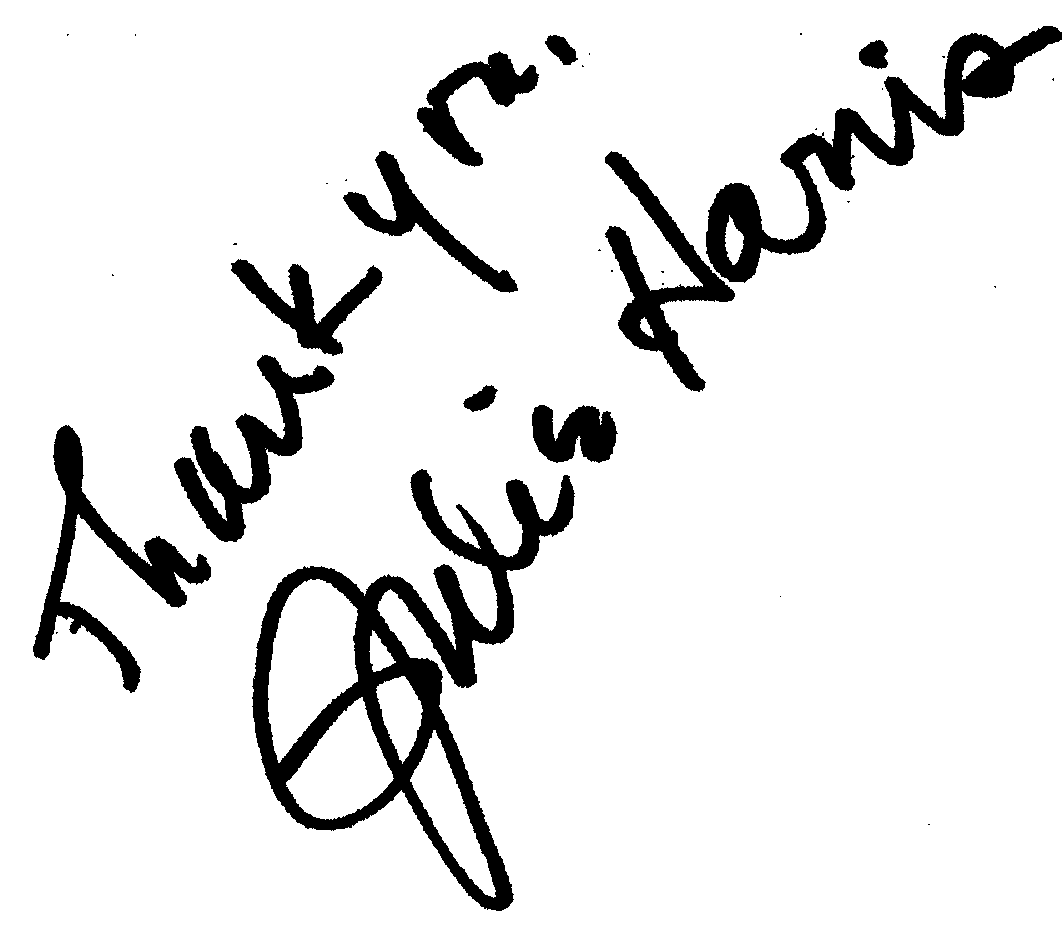 Thank you.
Julie's Harris